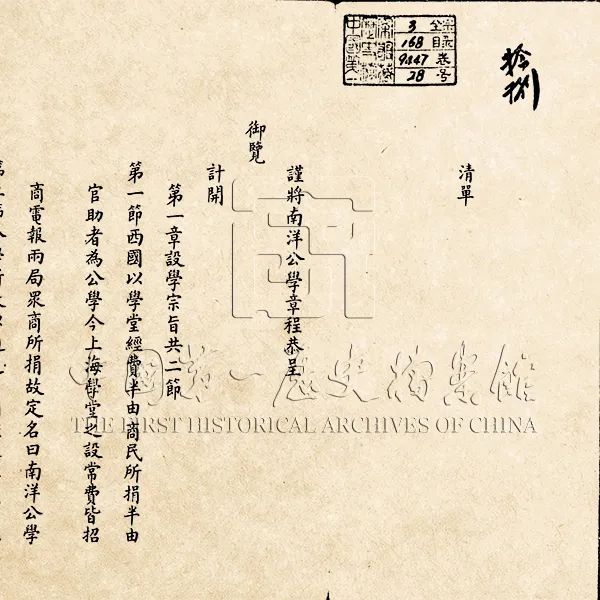 全宗 3
目录 168
卷 9447
号 28
清單
謹將南洋公學章程恭呈
御覽
計開
第一章設學宗旨共二節
第一節西國以學堂經費半由商民所捐半由
官助者為公學今上海學堂之設常費皆招
商電報兩局眾商所捐故定名曰南洋公學
中国第一历史档案馆
THE FIRST HISTORICAL ARCHIVES OF CHINA